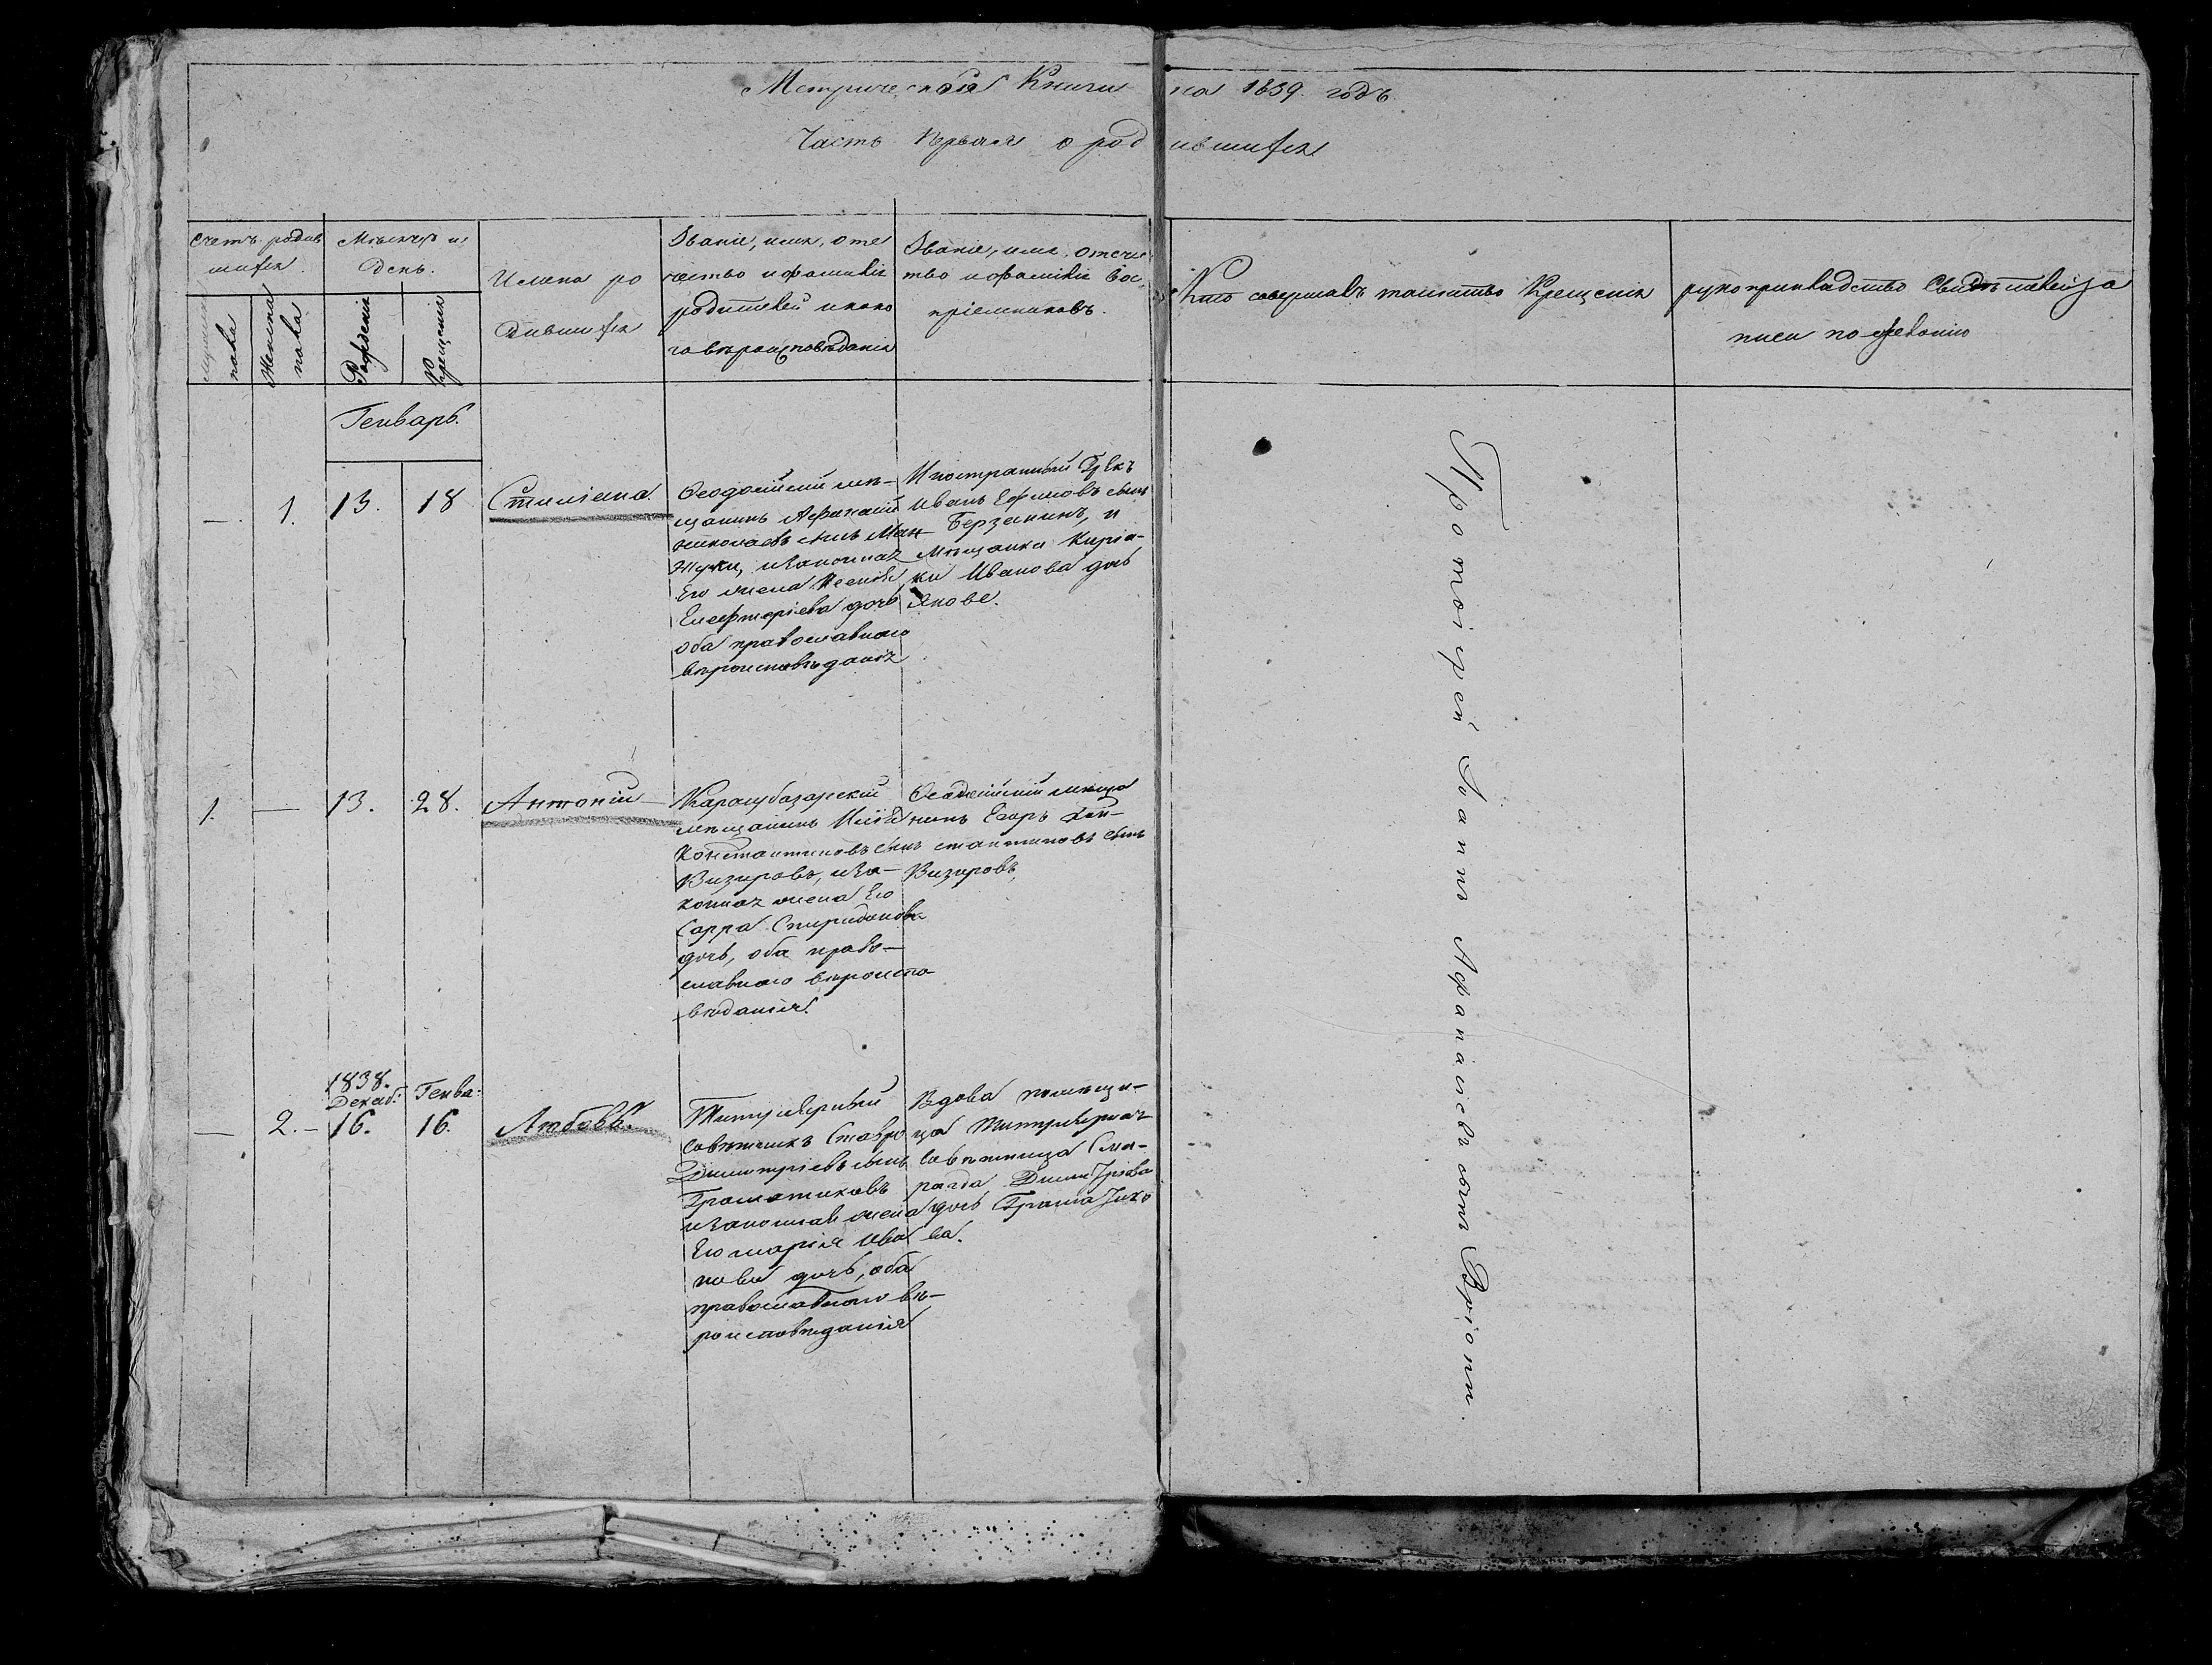 Метрическая Книга на 1839 годъ
Часть Первая о родившихся
Счетъ родив
шихся.
Мѣсяцъ и
день.
Мущинска
пола
Женска
пола
Рожденія
Крещенія
Имена ро
дившихся
Званіе, имя, оте
чество и фамилія
родителей и како
го вѣроисповѣданія
Званіе, имя, отече
тво и фамилія Вос
пріемниковъ.
Кто совершалъ таинство Крещенія
рукоприкладство Свидѣтелей за
писи по желанію
Генварь.
— 1. 13. 18 Стиліана.
Ѳеодосійскій мѣ-
щанинъ Афанасій
Николаевъ сынъ Ман
жуки, и законная
Его жена
Елефтеріева дочь
оба православнаго
вѣроисповѣданія
Иностранный Грекъ
Иванъ Ефимовъ сынъ
Берзанинъ, и
Мѣщанка Киріа-
ки Иванова дочь
Якове.
1. — 13. 28. Антоній
Карасубазарскій
мѣщанинъ Илія
Константиновъ сынъ
Визировъ, и за-
конная жена Его
Сарра Спиридонова
дочь, оба право-
славнаго вѣроиспо
вѣданія.
Ѳеодосійскій мѣща
нинъ Егоръ Кон-
стантиновъ сынъ
Визировъ,
— 2. — 1838.
Декаб: 16. Генва: 16. Любовь.
Титулярный
Совѣтникъ Ставро
Димитріевъ сынъ
Граматиковъ
и законная жена
Его Марія Ива
нова дочь, оба
православнаго вѣ-
роисповѣданія
Вдова помѣщи-
ца Титулярная
Совѣтница Сма-
рагда Димитріева
дочь Граматико
ва.
Протоіерей Іоаннъ Афанасьевъ сынъ Вріони.